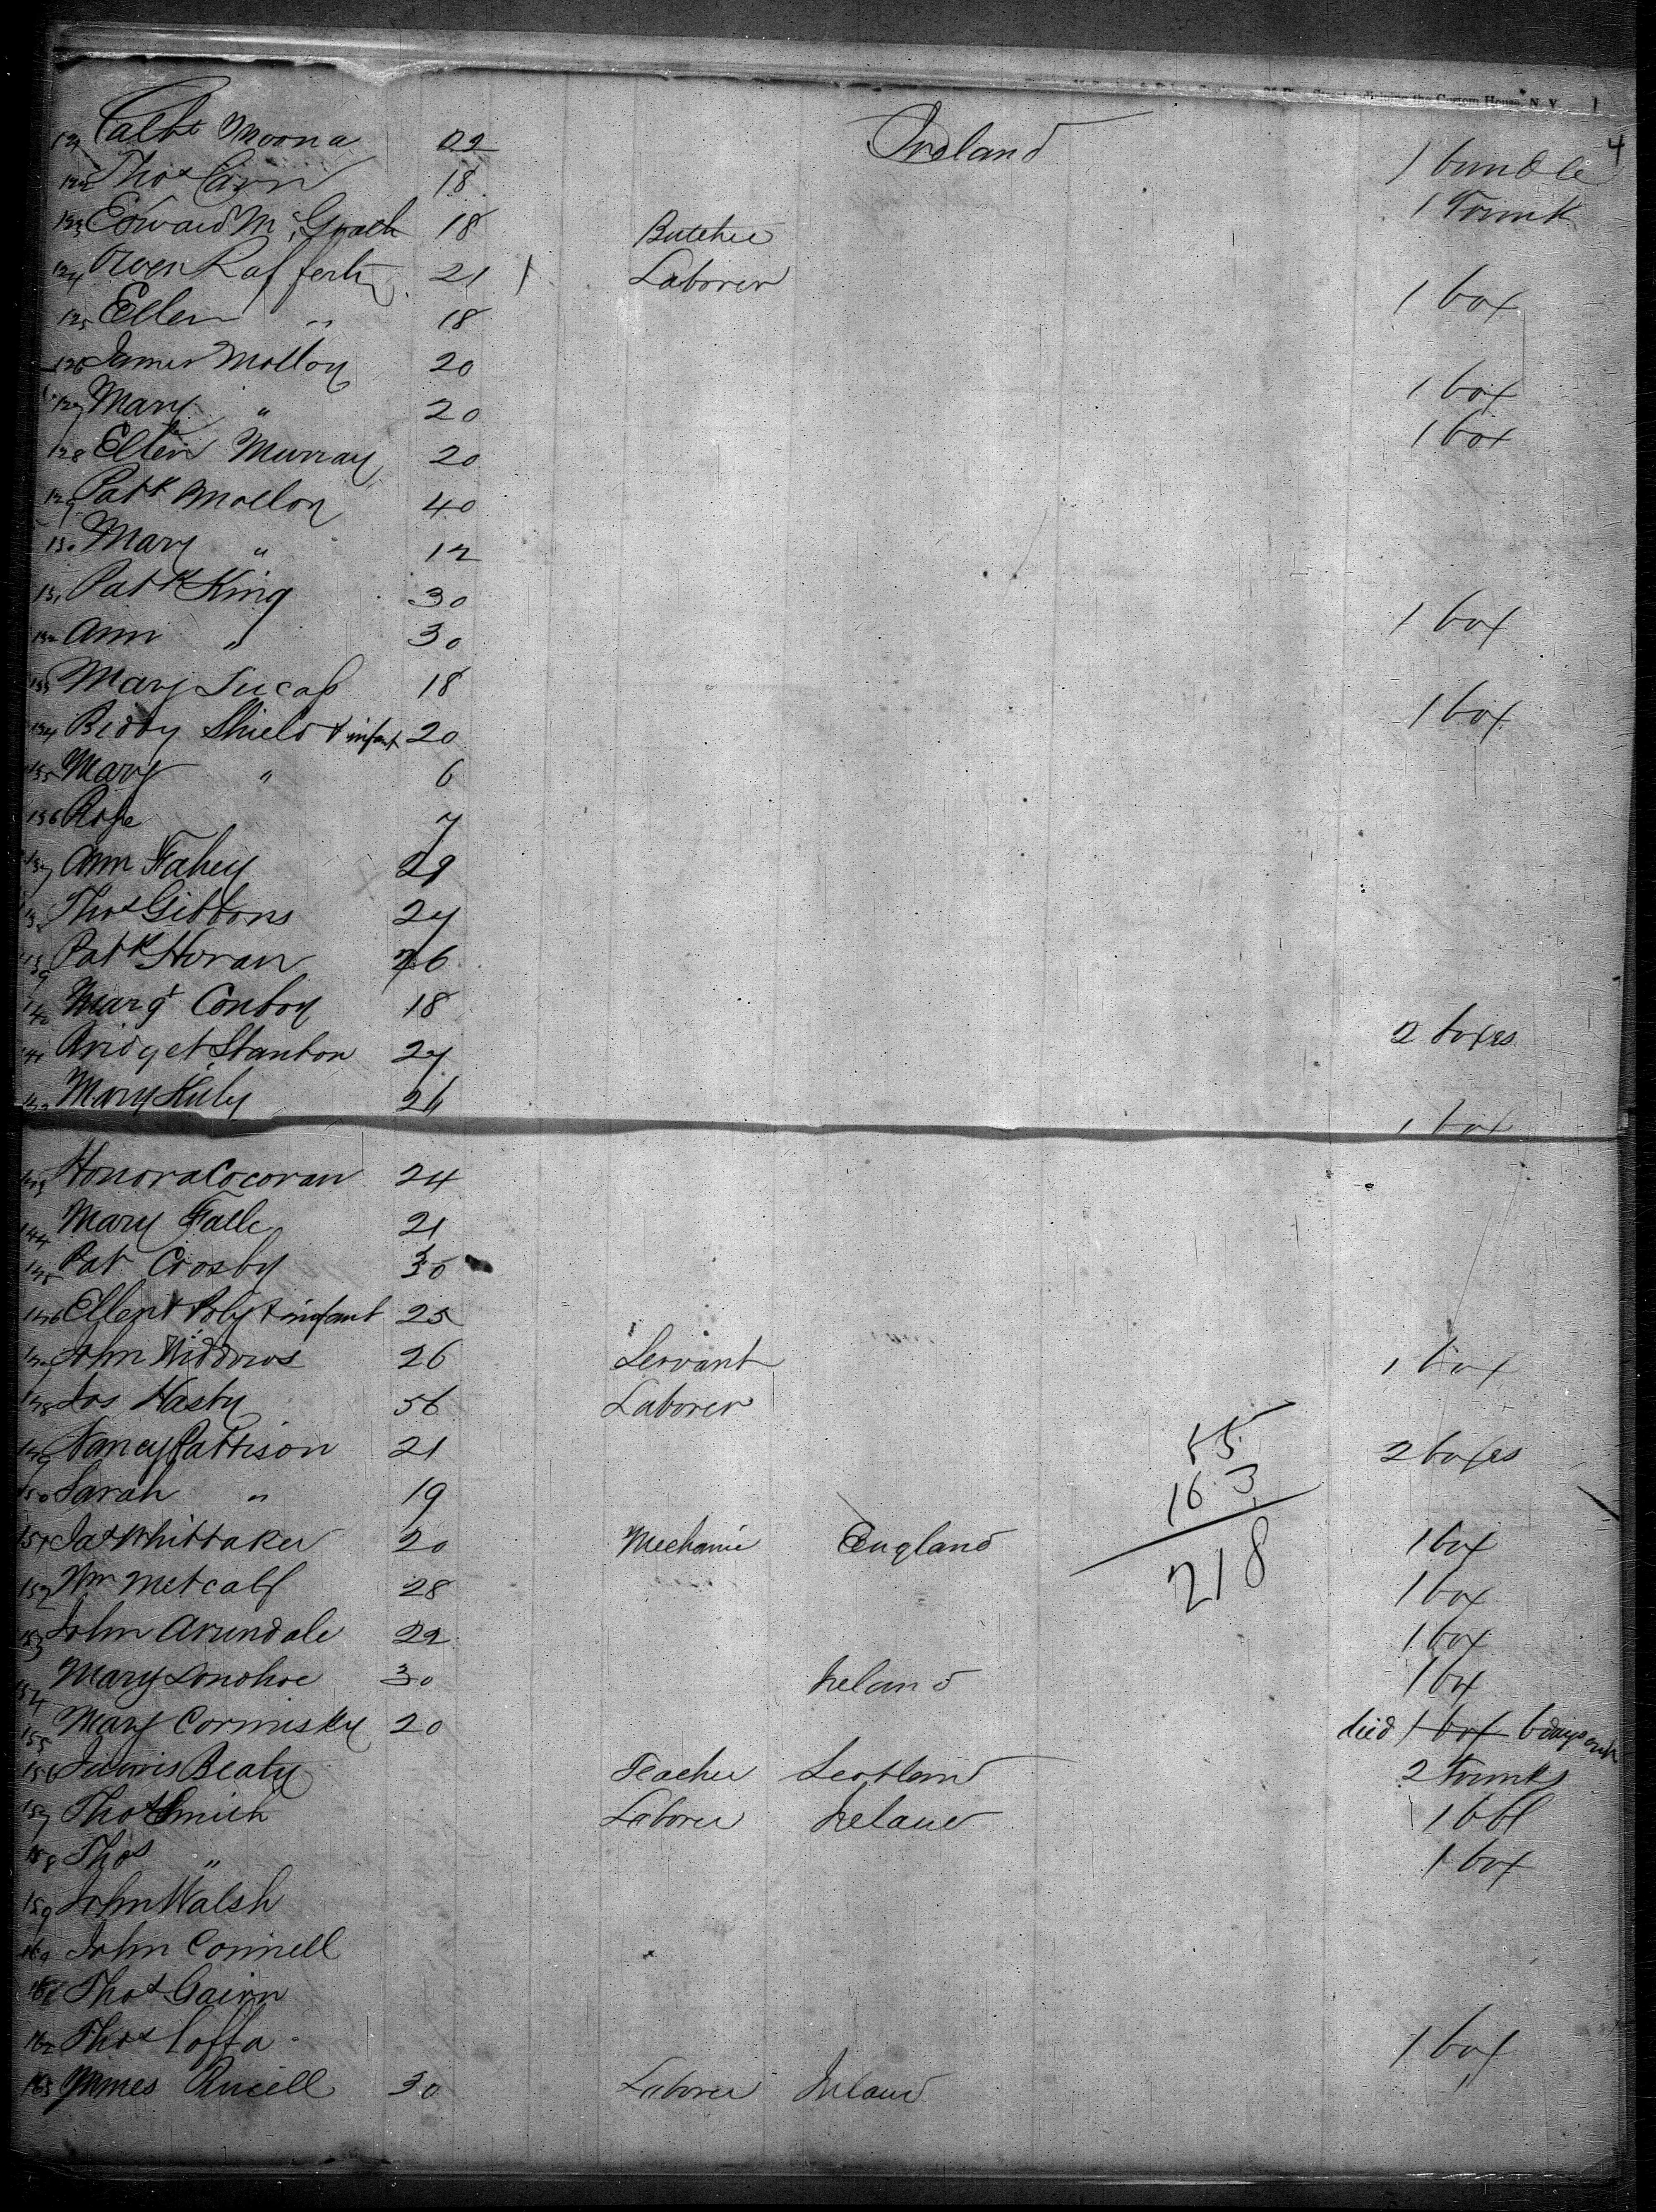 adjoining the Custom House, N. Y.
4
121 Cath^t Moona 22 Ireland 1 bundle
122 Tho^s Cairn 18 1 Trunk
123 Edward Mc Grach 18 Butcher
124 Owen Rafferty 21 Laborer 1 box
125 Ellen " 18
126 James Molloy 20 1 box
127 Mary " 20 1 box
128 Ellen Murray 20
129 Pat^k Molloy 40
130 Mary " 12
131 Pat^k King 30 1 box
132 Ann " 30
133 Mary Lucas 18 1 box
134 Biddy Shield & infant 20
135 Mary " 6
136 Rose 7
137 Ann Fahey 29
138 Tho^s Gibbons 27
139 Pat^k Horan 26
140 Marg^t Conboy 18 2 boxes
141 Bridget Stanton 27
142 Mary 26 1 box
143 Honora Cocoran 24
144 Mary Falle 21
145 Pat Crosby 30
146 Ellen & infant 25
147 John Widdows 26 Servant 1 box
148 Jos Hasty 56 Laborer
149 Nancy Pattison 21 2 boxes
55
150 Sarah " 19
163
151 Ja^s Whittaker 20 Mechanic England 1 box
218
152 Wm Metcalf 28 1 box
153 John Arundale 22 1 box
154 Mary Donohoe 30 Ireland 1 box
155 Mary Cormisky 20 died 1 box 6 days out
156 Beaty Teacher Scotland 2 Trunks
157 Tho^s Smith Laborer Ireland 1 bbl
158 Tho^s " 1 box
159 John Walsh
160 John Connell
161 Tho^s Cairn
162 Tho^s Coffa 1 box
163 James 30 Laborer Ireland